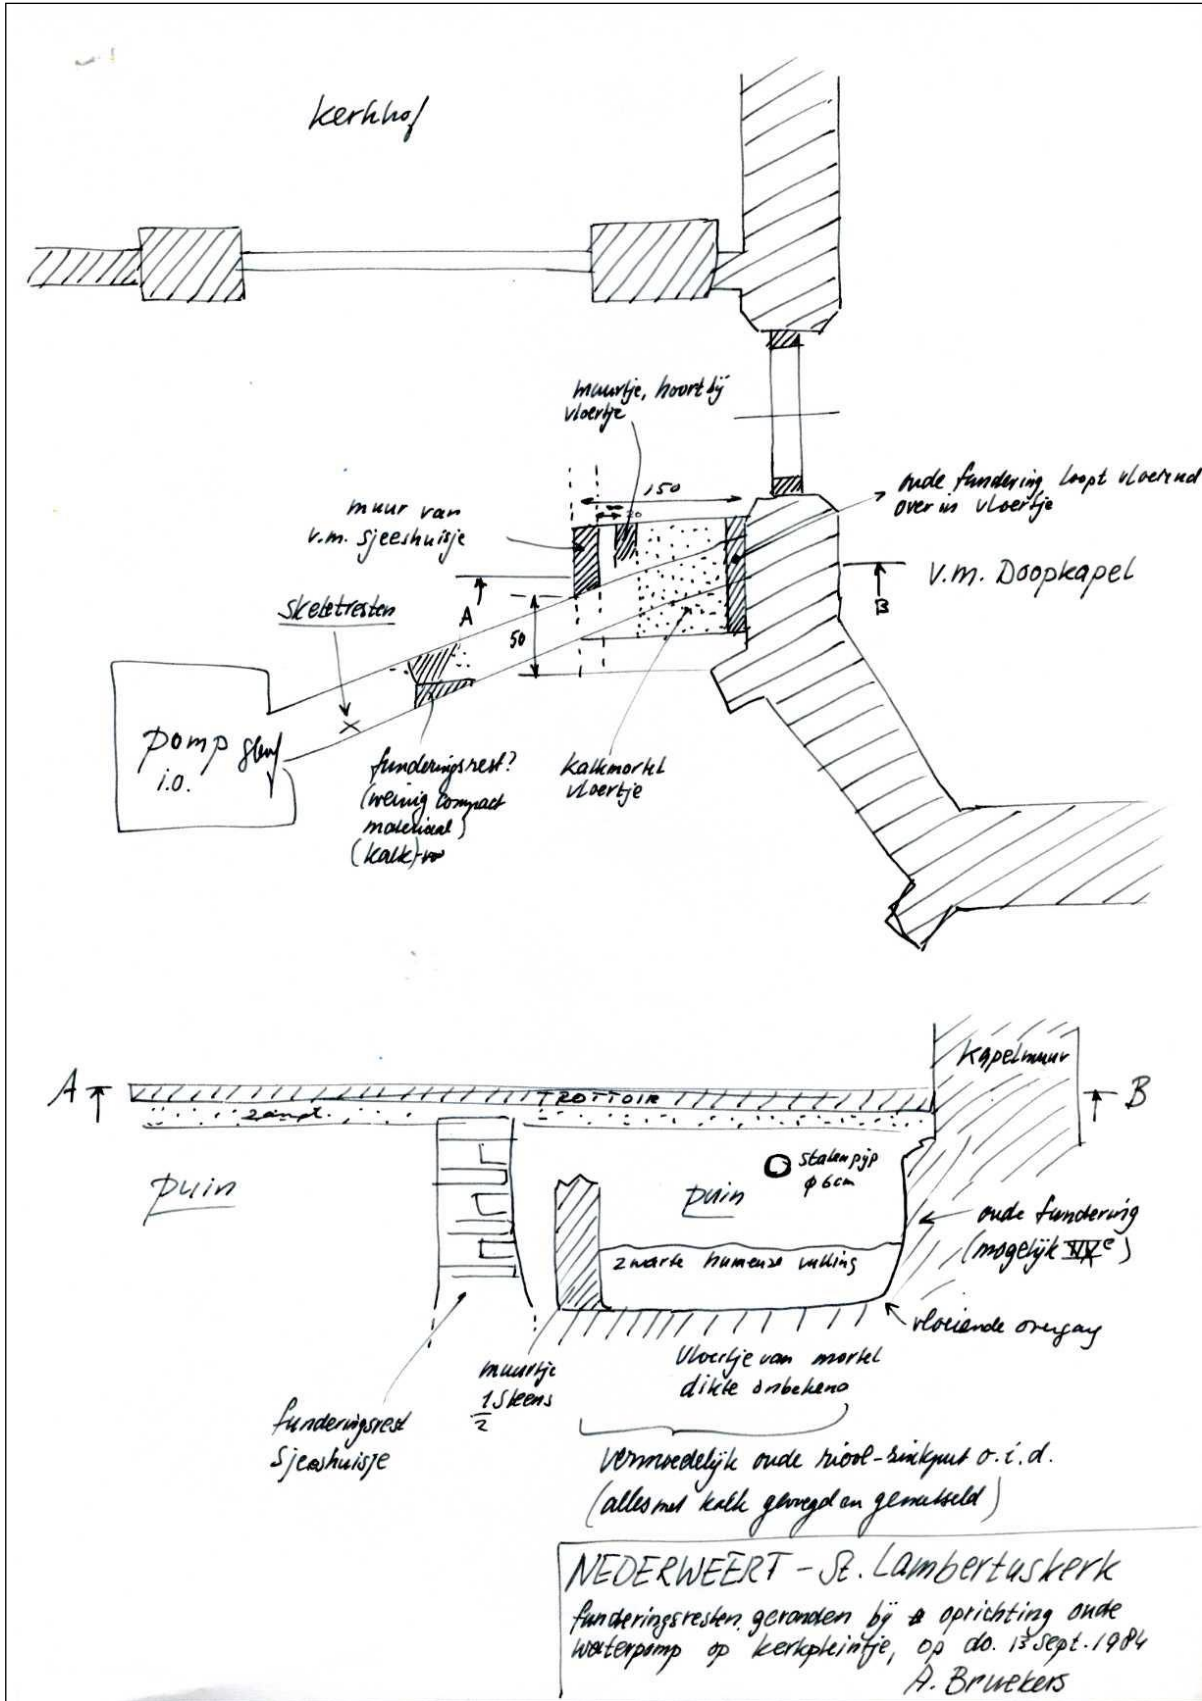 kerkhof
muurtje, hoort bij
vloertje
150
20
oude fundering loopt vloeiend
over in vloertje
muur van
v.m. sjeeshuisje
A
B
v.m. Doopkapel
skeletresten
50
pomp
i.o.
funderingsrest?
(weinig compact
materiaal)
(kalk)
kalkmortel
vloertje
kapelmuur
A
TROTTOIR
B
zand
stalen pijp
φ 6cm
puin
puin
oude fundering
(mogelijk
zwarte humeuze vulling
vloeiende overgang
muurtje
1/2 steens
vloertje van mortel
dikte onbekend
funderingsrest
sjeeshuisje
vermoedelijk oude riool-zinkput o.i.d.
(alles met kalk gevoegd en gemetseld)
NEDERWEERT - St. Lambertuskerk
funderingsresten gevonden bij oprichting oude
waterpomp op kerkpleintje, op do. 13 sept. 1984
A. Bruekers